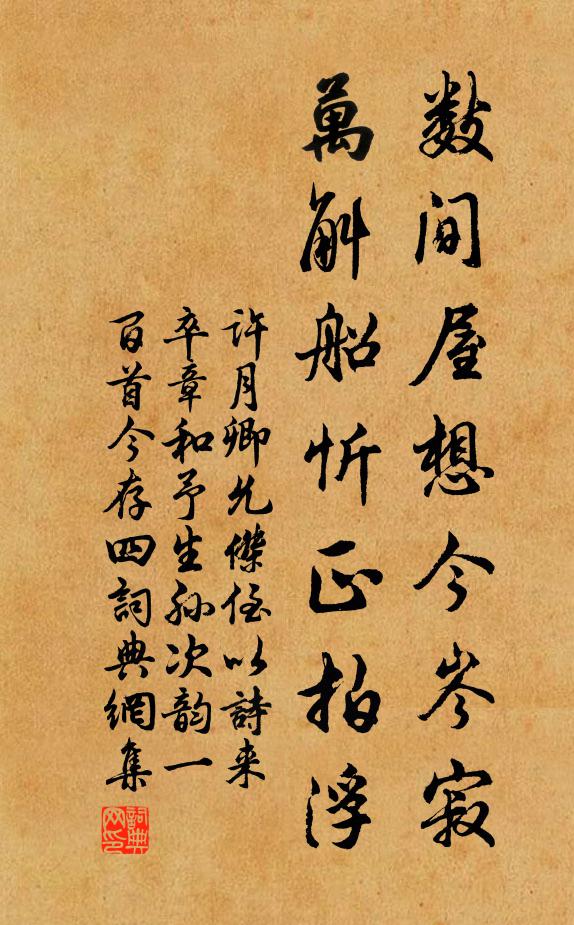 数间屋想今岑寂
萬斛船忻正拍浮
许月卿允傑侄以詩来
卒章和予生孙次韵一
百首今存四詞典網集
詞典
网印